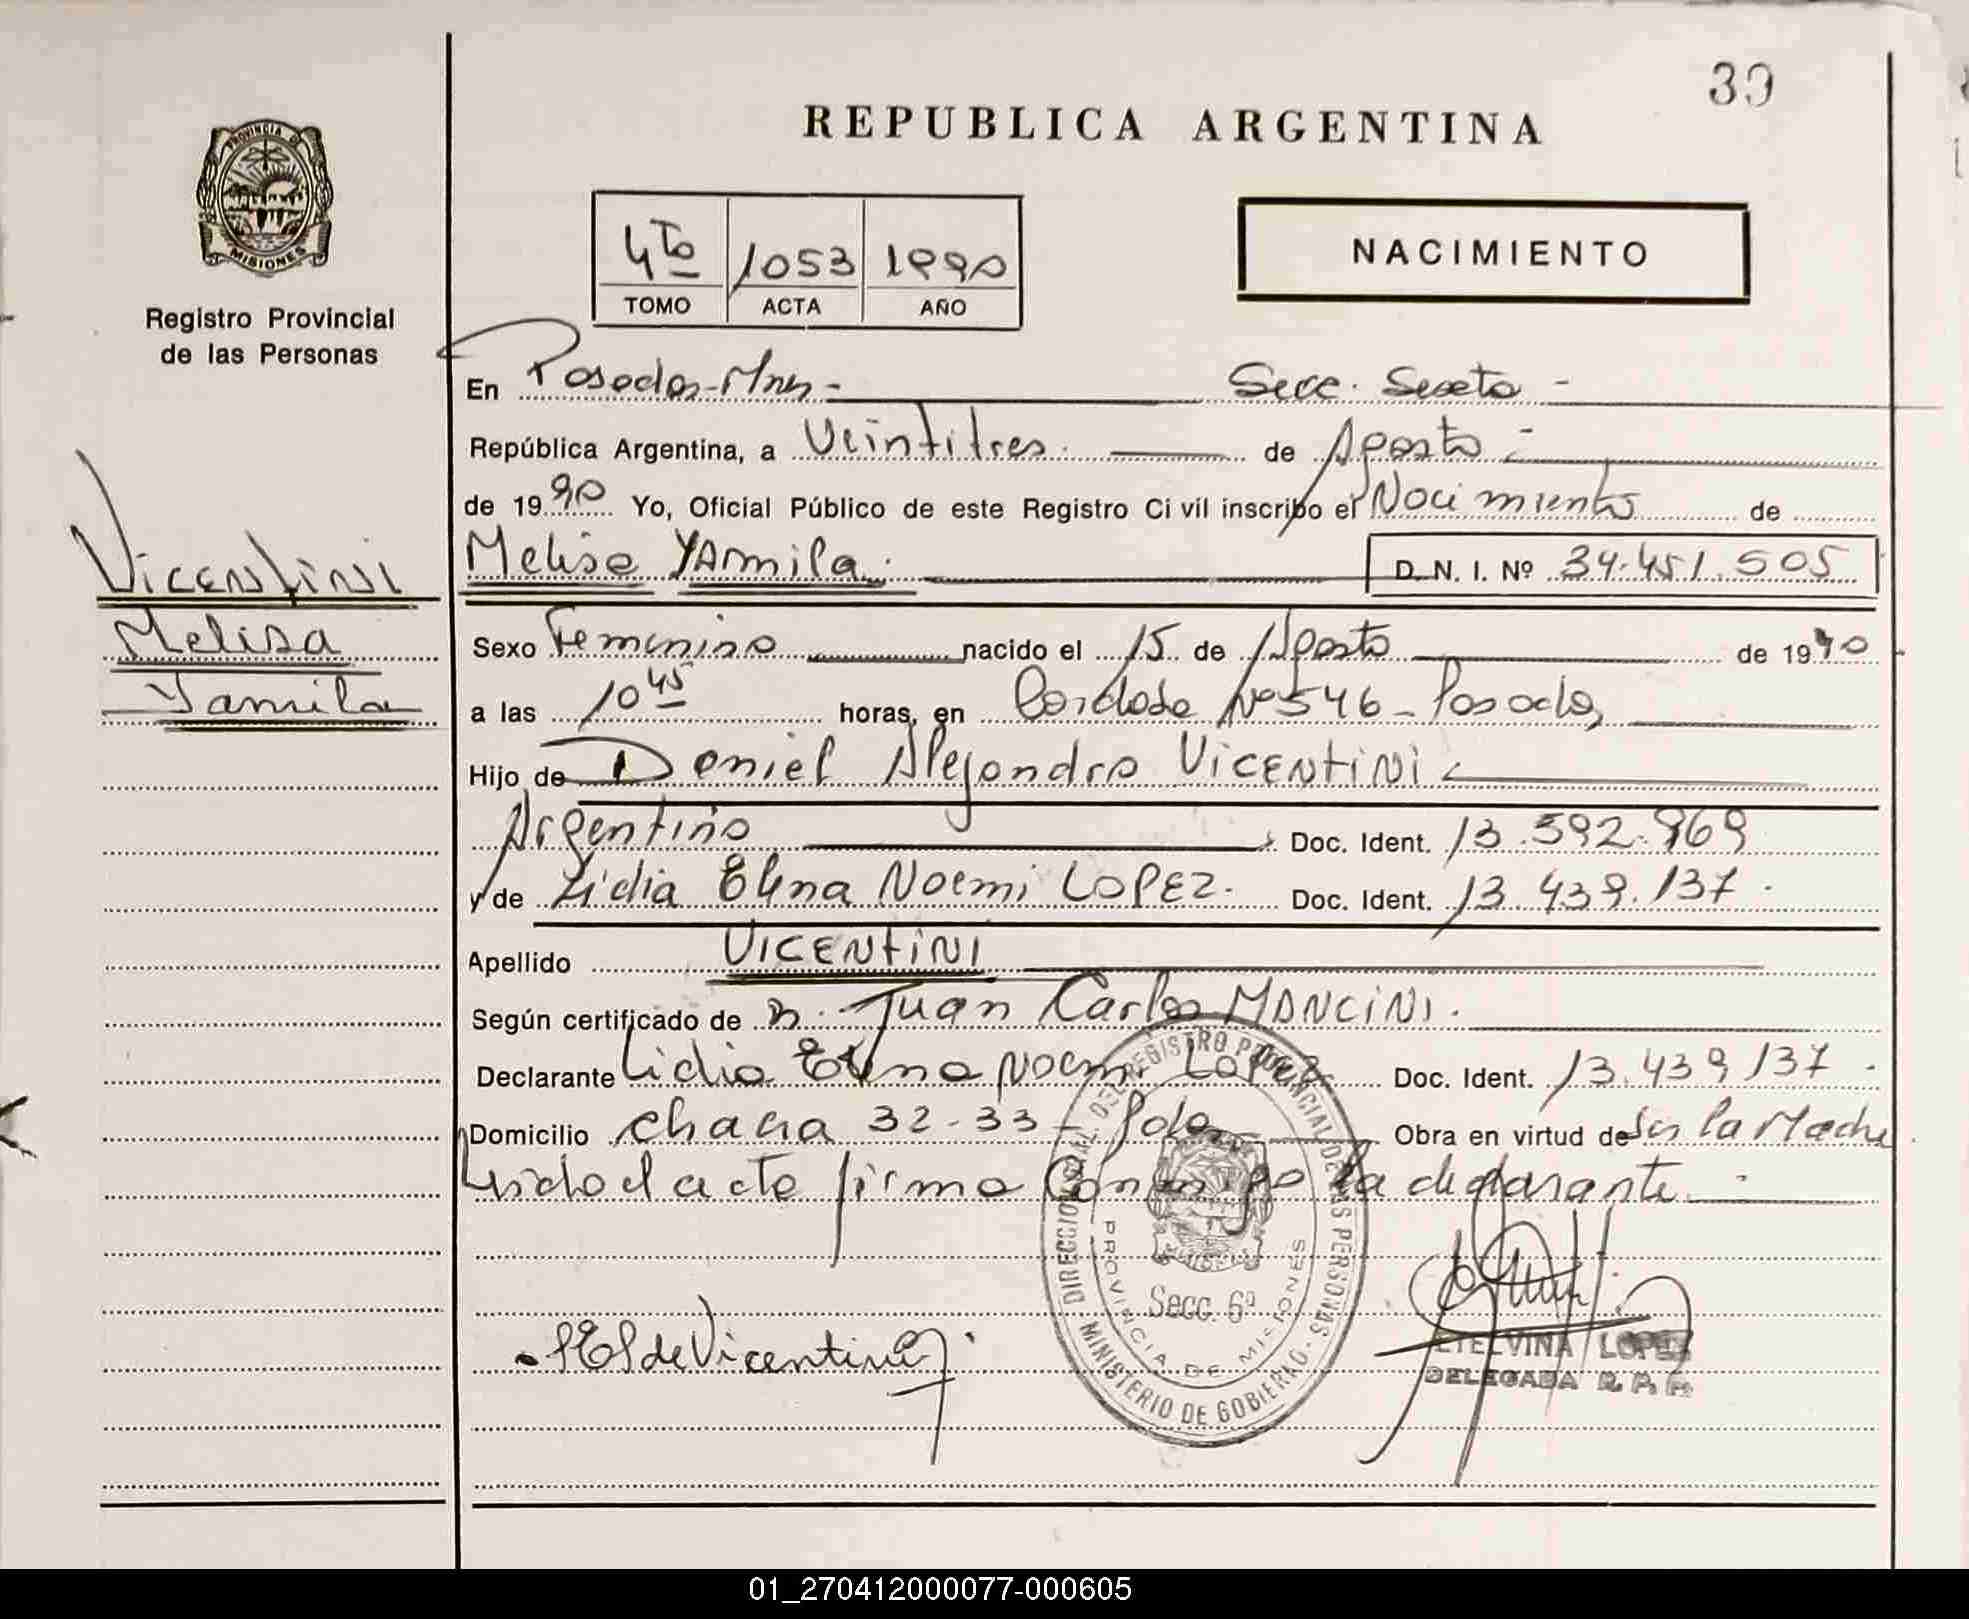 39
REPUBLICA ARGENTINA
PROVINCIA DE
MISIONES
Registro Provincial
de las Personas
4to 1053 1990
TOMO ACTA AÑO
NACIMIENTO
En Posadas-Mnes- Secc. Sexta -
República Argentina, a Veintitres de Agosto -
de 1990 Yo, Oficial Público de este Registro Civil inscribo el Nacimiento de
Melisa YAmila. D. N. I. Nº 34.451.505
Vicentini
Melisa
Yamila
Sexo Femenino nacido el 15 de Agosto de 1990
a las 10 45 horas, en Cordoba Nº 546 - Posadas
Hijo de Daniel Alejandro Vicentini
Argentino Doc. Ident. 13.592.969
y de Lidia Elena Noemi LOPEZ. Doc. Ident. 13.439.137.
Apellido VICENtiNI
Según certificado de Juan Carlos MANCiNi.
Declarante Lidia Elena Noemi Lopez Doc. Ident. 13.439.137.
Domicilio chacra 32-33 - Pdas Obra en virtud de Ser la Madre
Leido el acta firma Conmigo la declarante. -
DIRECCION GRAL. DEL REGISTRO PROVINCIAL DE LAS PERSONAS
MINISTERIO DE GOBIERNO
PROVINCIA DE MISIONES
Secc. 6ª
de Vicentini
ETELVINA LOPEZ
DELEGADA R. P. P.
01_270412000077-000605